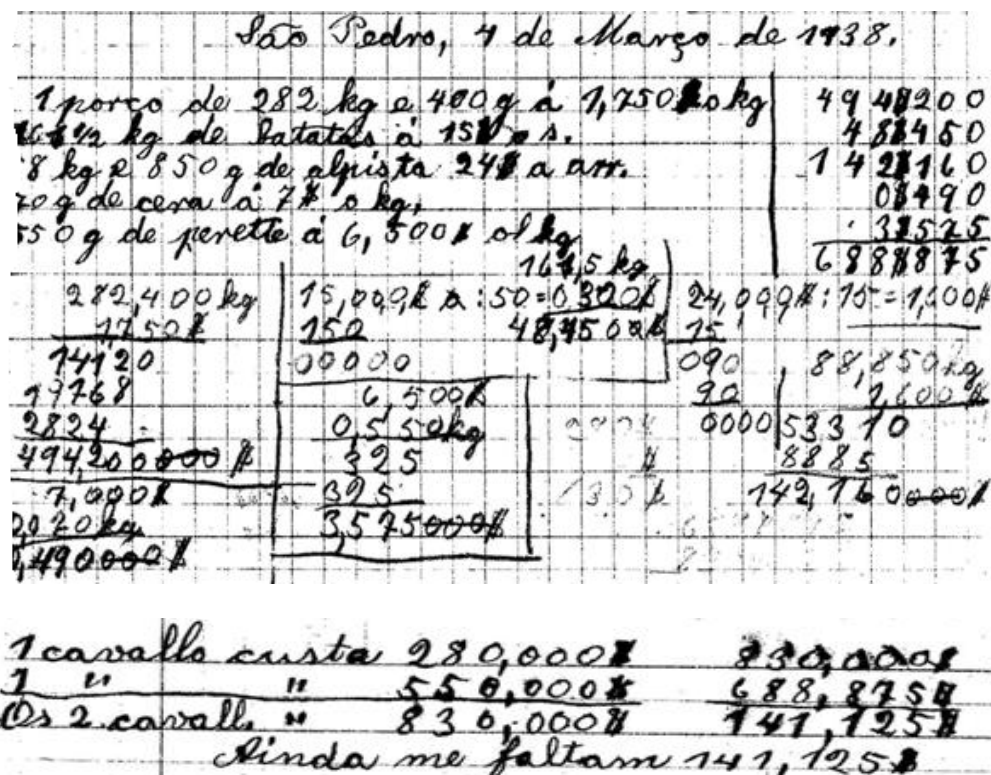 São Pedro, 4 de Março de 1938.
1 porco de 282 kg e 400 g á 1,750$ o kg 494$200
161 1/2 kg de batatas á 15$ o s. 48$450
8 kg e 850 g de alpista 24$ a arr. 142$160
70 g de cera á 7$ o kg, 0$490
550 g de perette á 6,500$ ol kg 3$575
688$875
161,5 kg
282,400 kg
1,750$
14120
19768
2824
494,200000$
7,000$
0,070 kg
0,490000$
15,000$ a : 50 = 0,300$
150 48,4500$
00000
6,500$
0,550 kg
325
325
3,575000$
24,000$ : 15 = 1,600$
15
090
90
0000
88,850 kg
1,600$
53310
8885
142,160000$
1 cavallo custa 280,000$ 830,000$
1 " " 550,000$ 688,875$
Os 2 cavall. " 830,000$ 141,125$
Ainda me faltam 141,125$